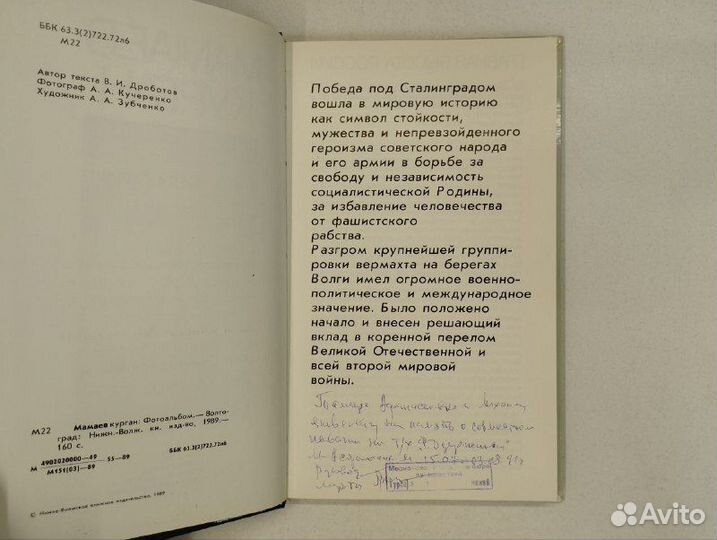 ББК 63.3(2)722.72л6
М22
Автор текста В. И. Дроботов
Фотограф А. А. Кучеренко
Художник А. А. Зубченко
М22
Мамаев курган: Фотоальбом.— Волго-
град: Нижн.-Волж. кн. изд-во, 1989.—
160 с.
М 4902020000—49 55—89
М151(03)—89
ББК 63.3(2)722.72л6
© Нижне-Волжское книжное издательство, 1989
Победа под Сталинградом
вошла в мировую историю
как символ стойкости,
мужества и непревзойденного
героизма советского народа
и его армии в борьбе за
свободу и независимость
социалистической Родины,
за избавление человечества
от фашистского
рабства.
Разгром крупнейшей группи-
ровки вермахта на берегах
Волги имел огромное военно-
политическое и международное
значение. Было положено
начало и внесен решающий
вклад в коренной перелом
Великой Отечественной и
всей второй мировой
войны.
на память о совместном
на т/х
Avito